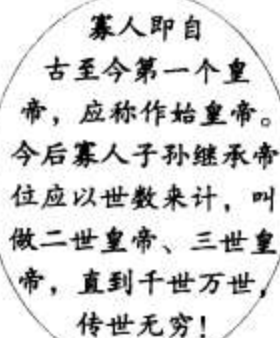 寡人即自
古至今第一个皇
帝，应称作始皇帝。
今后寡人子孙继承帝
位应以世数来计，叫
做二世皇帝、三世皇
帝，直到千世万世，
传世无穷！